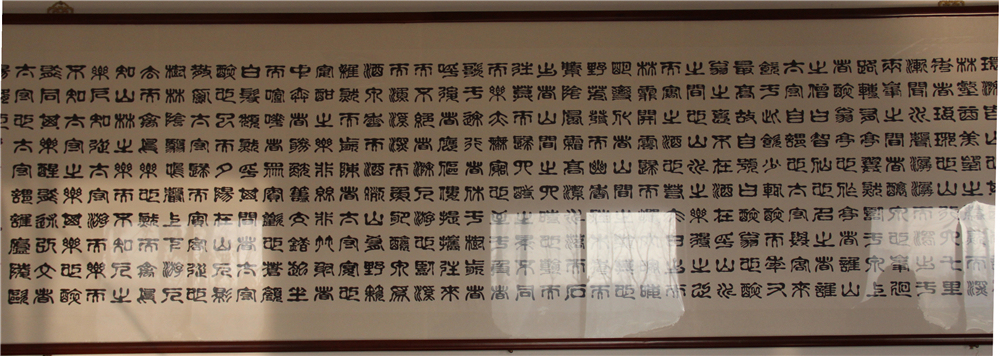 環滁皆山也其西南諸峰
林壑尤美望之蔚然而深
秀者瑯琊也山行六七里
漸聞水聲潺潺而瀉出于
兩峰之間者釀泉也峰回
路轉有亭翼然臨于泉上
者醉翁亭也作亭者誰山
之僧曰智仙也名之者誰
太守自謂也太守與客來
飲于此飲少輒醉而年又
最高故自號曰醉翁也醉
翁之意不在酒在乎山水
之間也山水之樂得之心
而寓之酒也若夫日出而
林霏開雲歸而巖穴暝晦
明變化者山間之朝暮也
野芳發而幽香佳木秀而
繁陰風霜高潔水落而石
出者山間之四時也朝而
往暮而歸四時之景不同
而樂亦無窮也至于負者
歌于途行者休于樹前者
呼後者應傴僂提攜往來
而不絕者滁人遊也臨溪
而漁溪深而魚肥釀泉為
酒泉香而酒洌山肴野蔌
雜然而前陳者太守宴也
宴酣之樂非絲非竹射者
中弈者勝觥籌交錯起坐
而諠譁者眾賓歡也蒼顏
白髮頹然乎其間者太守
醉也已而夕陽在山人影
散亂太守歸而賓客從也
樹林陰翳鳴聲上下遊人
去而禽鳥樂也然而禽鳥
知山林之樂而不知人之
樂人知從太守遊而樂而
不知太守之樂其樂也醉
能同其樂醒能述以文者
太守也太守謂誰廬陵歐
陽修也